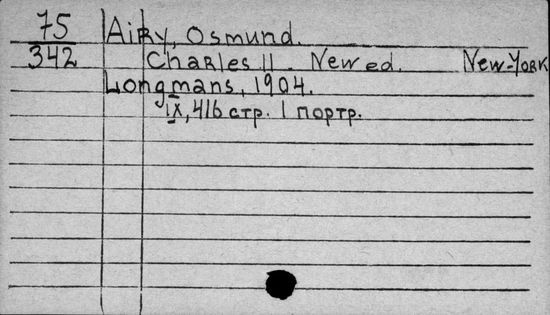 75 Airy, Osmund.
342 Charles II. New ed. New-York
Longmans, 1904.
IX, 416 стр. 1 портр.